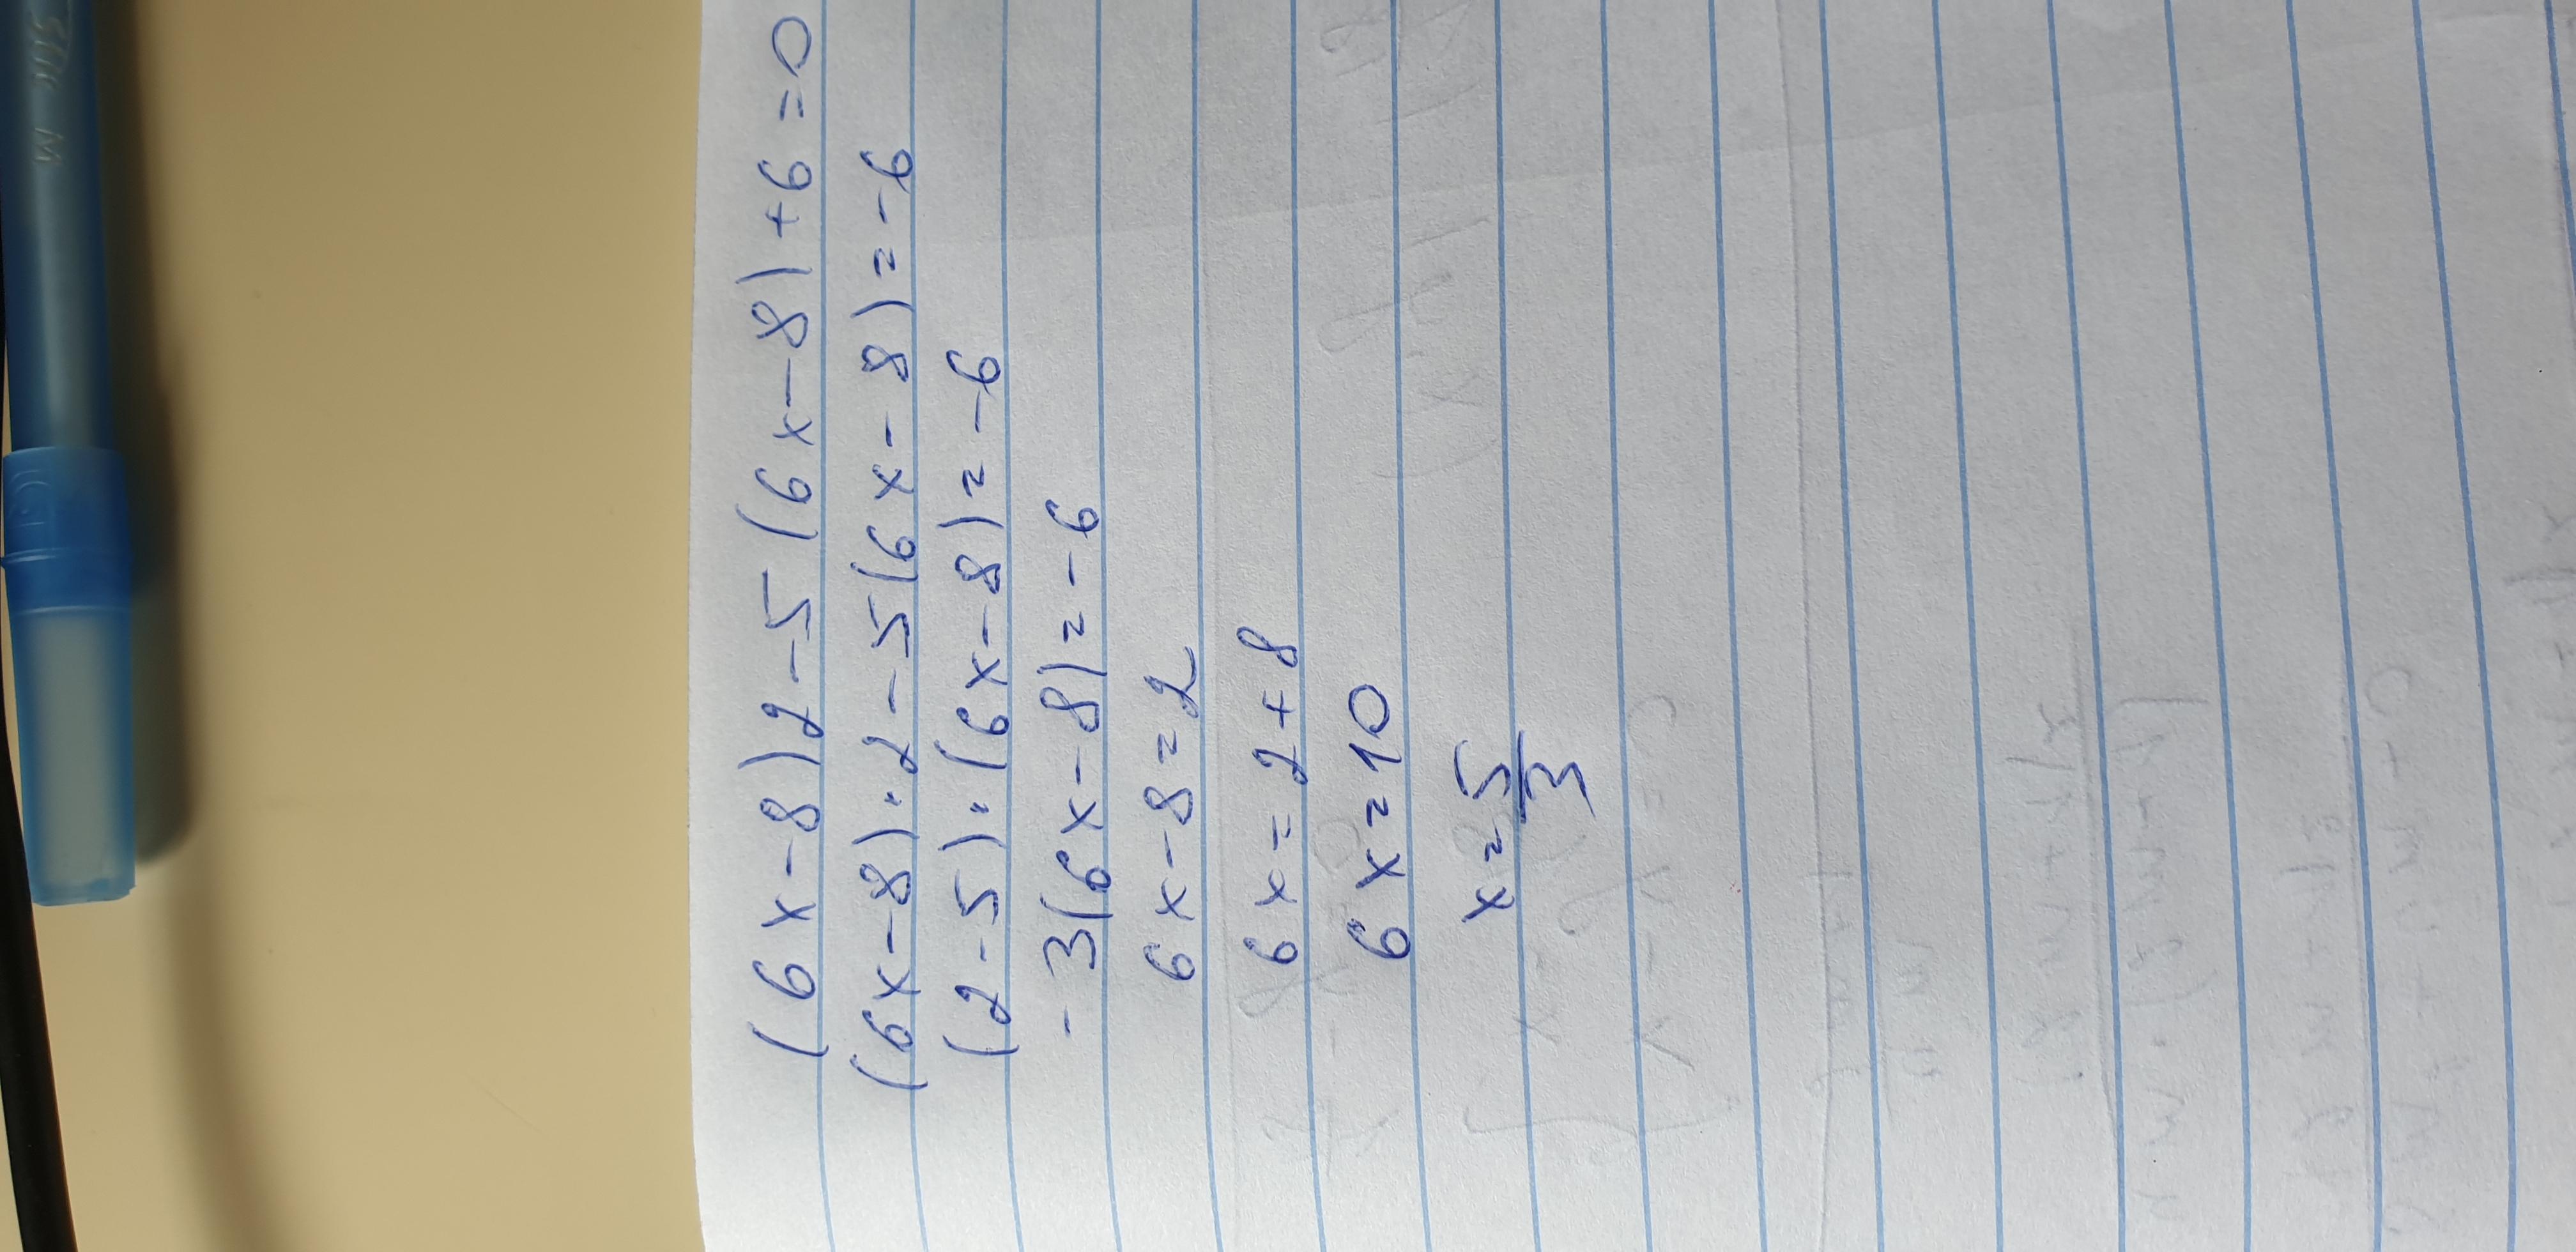 (6x-8)2-5(6x-8)+6=0
(6x-8)·2-5(6x-8)=-6
(2-5)·(6x-8)=-6
-3(6x-8)=-6
6x-8=2
6x=2+8
6x=10
x=5/3
STIC M